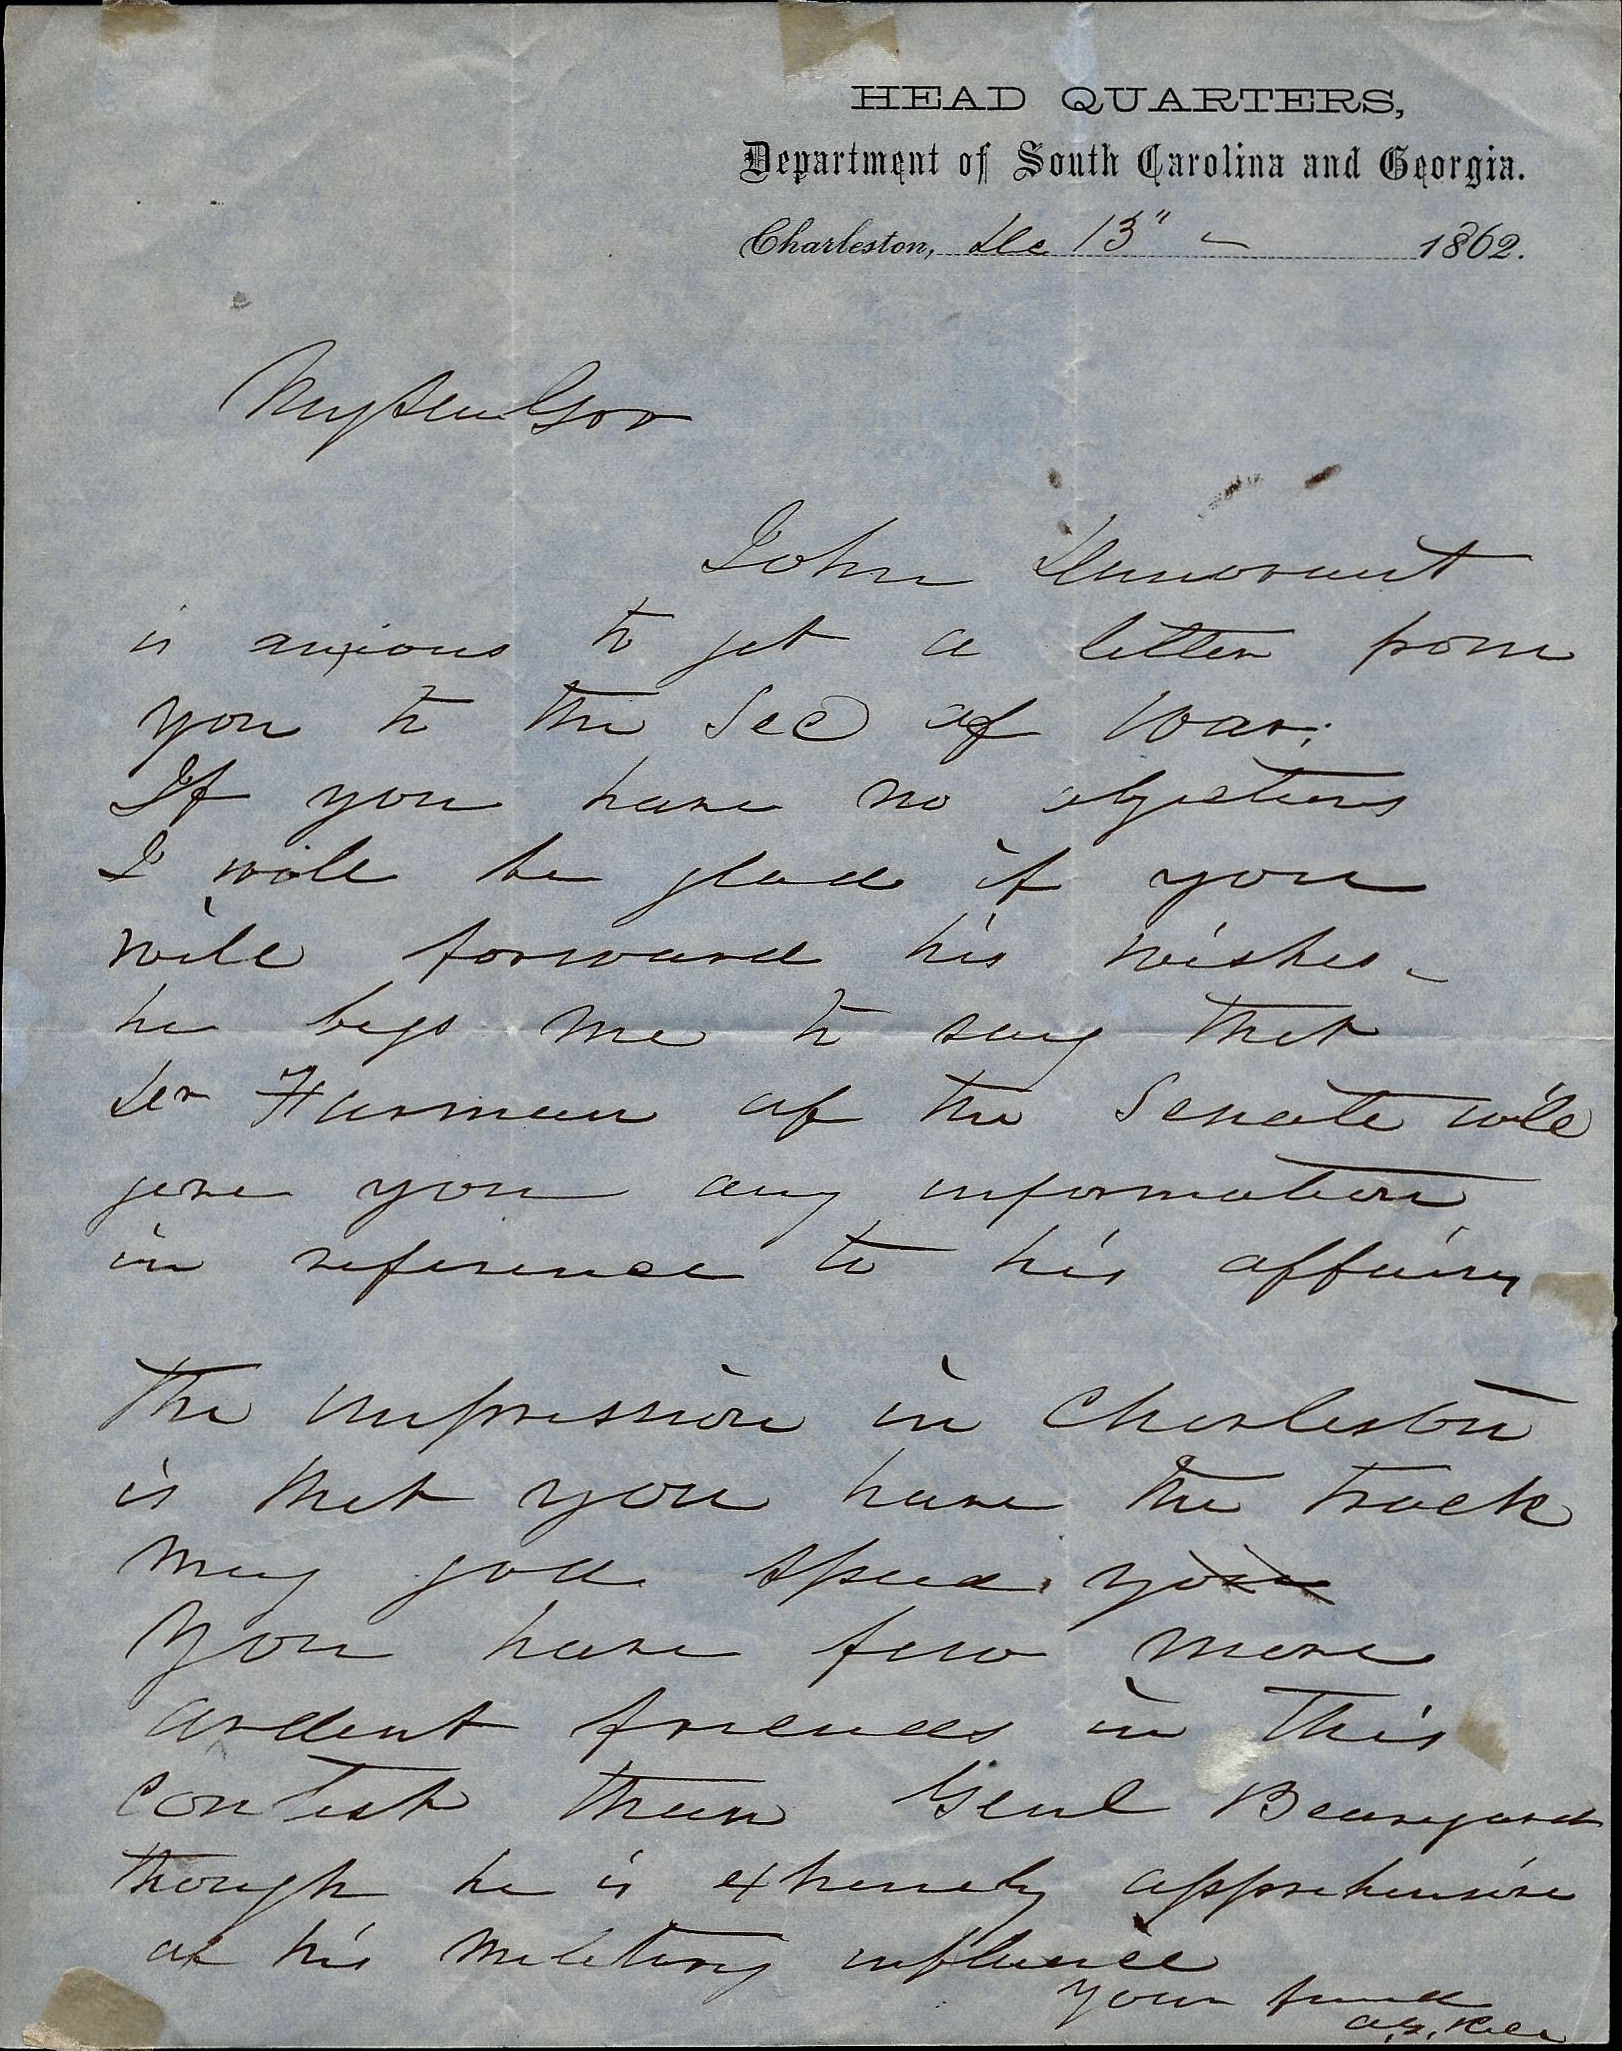 HEAD QUARTERS,
Department of South Carolina and Georgia.
Charleston, Dec 13" 1862.
My dear Gov
John Dunovant
is anxious to get a letter from
you to the Sec of War;
If you have no objections
I will be glad if you
will forward his wishes -
he begs me to say that
Dr Furman of the Senate will
give you any information
in reference to his affairs
The impression in Charleston
is that you have the track
may god speed you
You have few more
ardent friends in this
contest than Genl Beauregard
though he is extremely apprehensive
of his military influence
Your friend